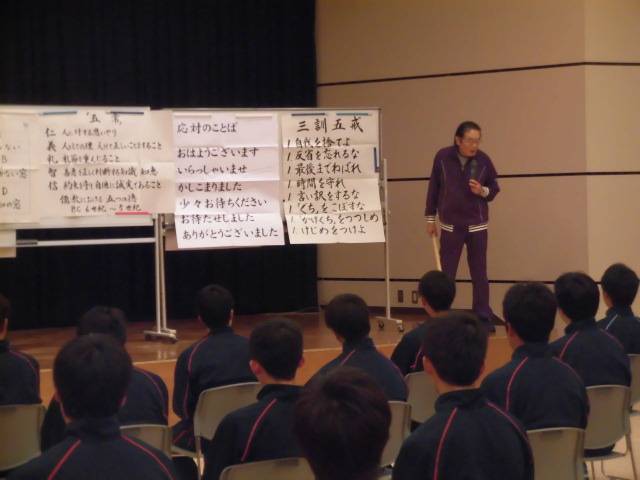 ない
B
がない窓
D
の窓
五常
仁 人に対する思いやり
義
礼 礼節を重んじること
智
信 約束を守り自他に誠実であること
儒教における五つの徳
応対のことば
おはようございます
いらっしゃいませ
かしこまりました
少々お待ちください
お待たせしました
ありがとうございました
三訓五戒
1. 自我を捨てよ
1. 反省を忘れるな
1. 最後までねばれ
1. 時間を守れ
1. 言い訳をするな
1. 「ぐち」をこぼすな
1. 「かげぐち」をつつしめ
1. けじめをつけよ